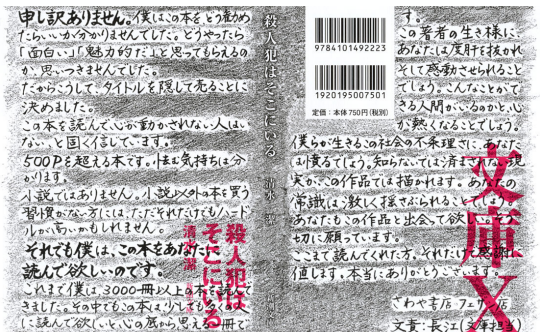 申し訳ありません。僕はこの本をどう勧め
たらいいか分かりませんでした。どうやったら
「面白い」「魅力的だ」と思ってもらえるの
か、思いつきませんでした。
だからこうして、タイトルを隠して売ることに
決めました。
この本を読んで心が動かされない人はい
ない、と固く信じています。
500Pを超える本です。怯む気持ちは分
かります。
小説ではありません。小説以外の本を買う
習慣がない方には、ただそれだけでもハード
ルが高いかもしれません。
それでも僕は、この本をあなたに
読んで欲しいのです。
これまで僕は、3000冊以上の本を読んで
きました。その中でもこの本は、少しでも多くの人
に読んで欲しいと心の底から思える一冊で
殺人犯は
そこにいる
清水潔
殺人犯はそこにいる
清水 潔
9784101492223
1920195007501
定価:本体750円(税別)
す。
この著者の生き様に
あなたは度肝を抜かれ
そして感動させられること
でしょう。こんなことがで
きる人間がいるのかと、心
が熱くなることでしょう。
僕らが生きるこの社会の不条理さに、あなた
は憤るでしょう。知らないでは済まされない現
実が、この作品では描かれます。あなたの
常識は激しく揺さぶられることでしょう。
あなたもこの作品と出会って欲しい。そう
切に願っています。
ここまで読んでくれた方、それだけで感謝に
値します。本当にありがとうございます。
さわや書店 フェザン店
文責:長江(文庫担当)
文庫X